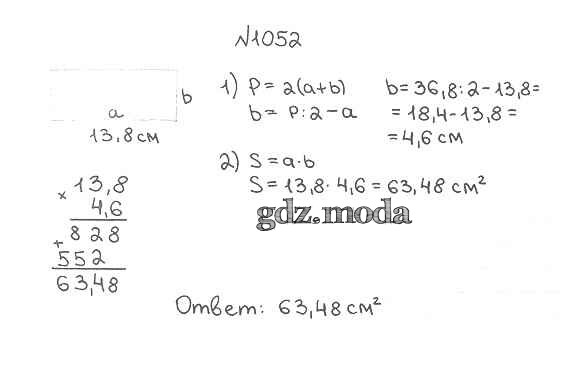 N1052
b
a
13,8 см
1) P = 2(a+b)
b = P:2 - a
b = 36,8:2 - 13,8 =
= 18,4 - 13,8 =
= 4,6 см
2) S = a·b
S = 13,8 · 4,6 = 63,48 см²
gdz.moda
× 13,8
4,6
+ 828
552
63,48
Ответ: 63,48 см²